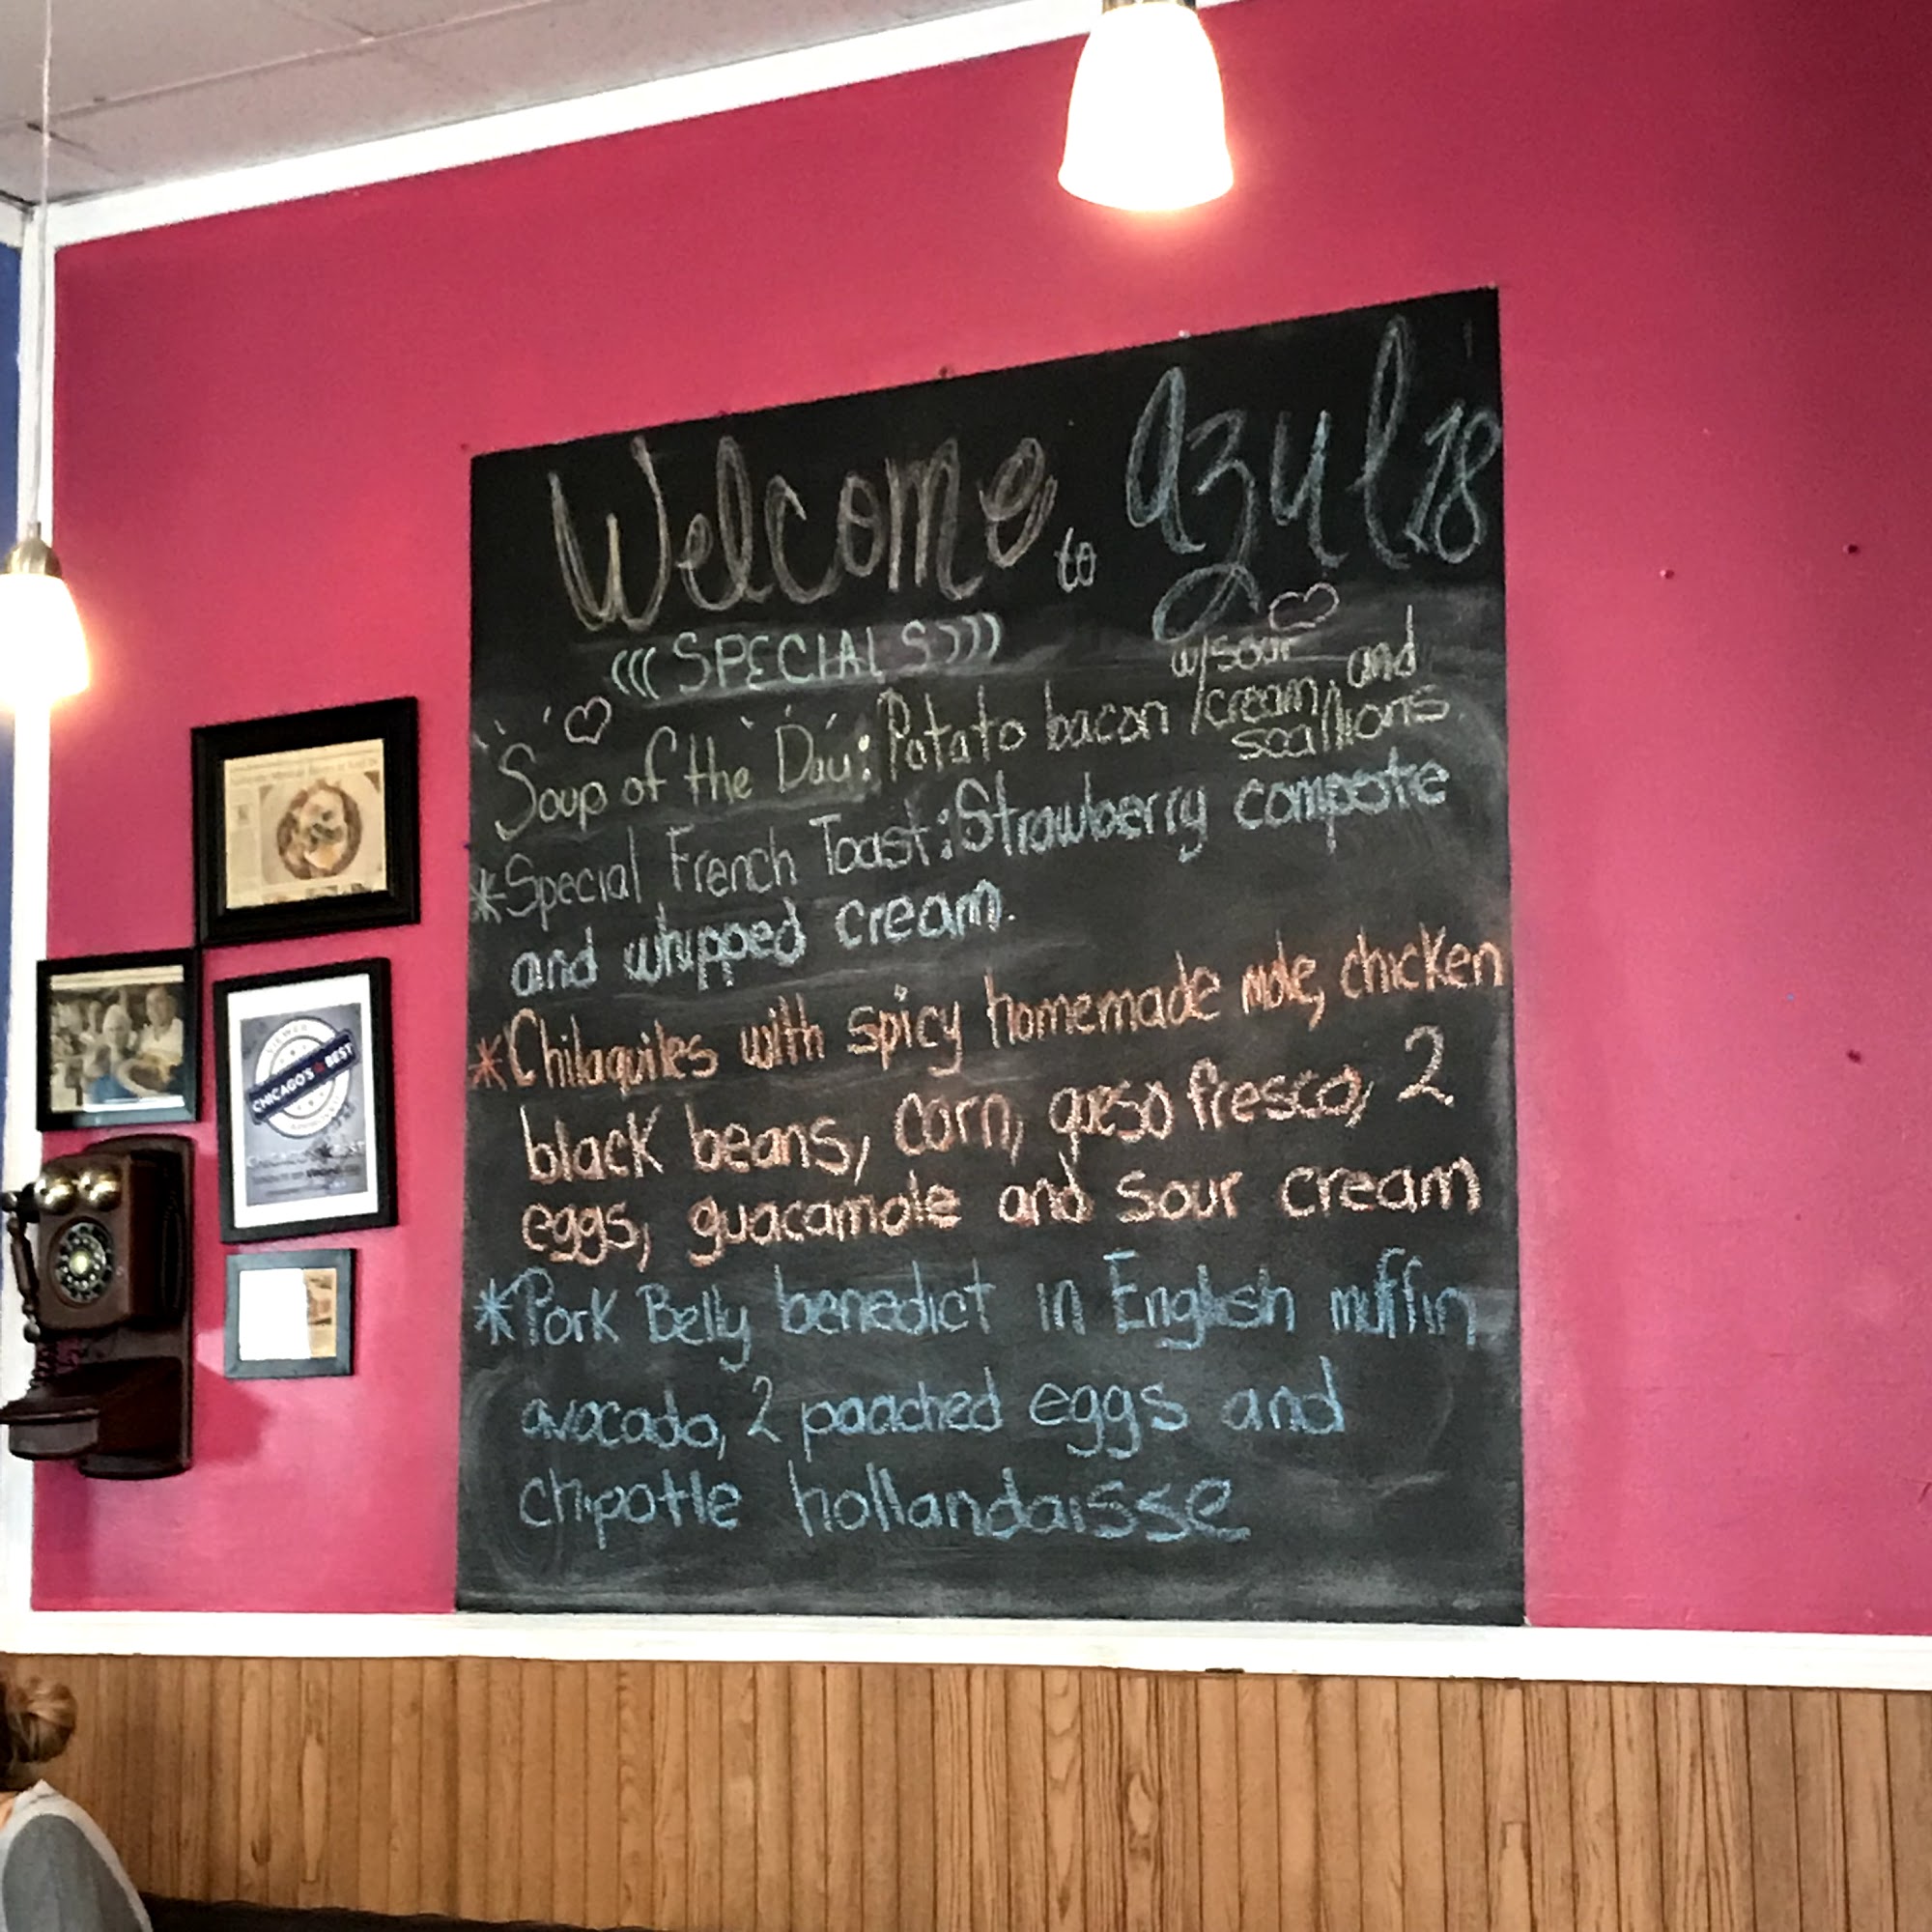 Welcome to Azul 18
((( SPECIALS )))
Soup of the Day: Potato bacon w/sour
/cream, and
scallions
*Special French Toast: Strawberry compote
and whipped cream.
*Chilaquiles with spicy homemade mole, chicken
black beans, corn, queso fresco, 2
eggs, guacamole and sour cream
*Pork Belly benedict in English muffin
avocado, 2 poached eggs and
chipotle hollandaisse
VIEWER
CHICAGO'S BEST